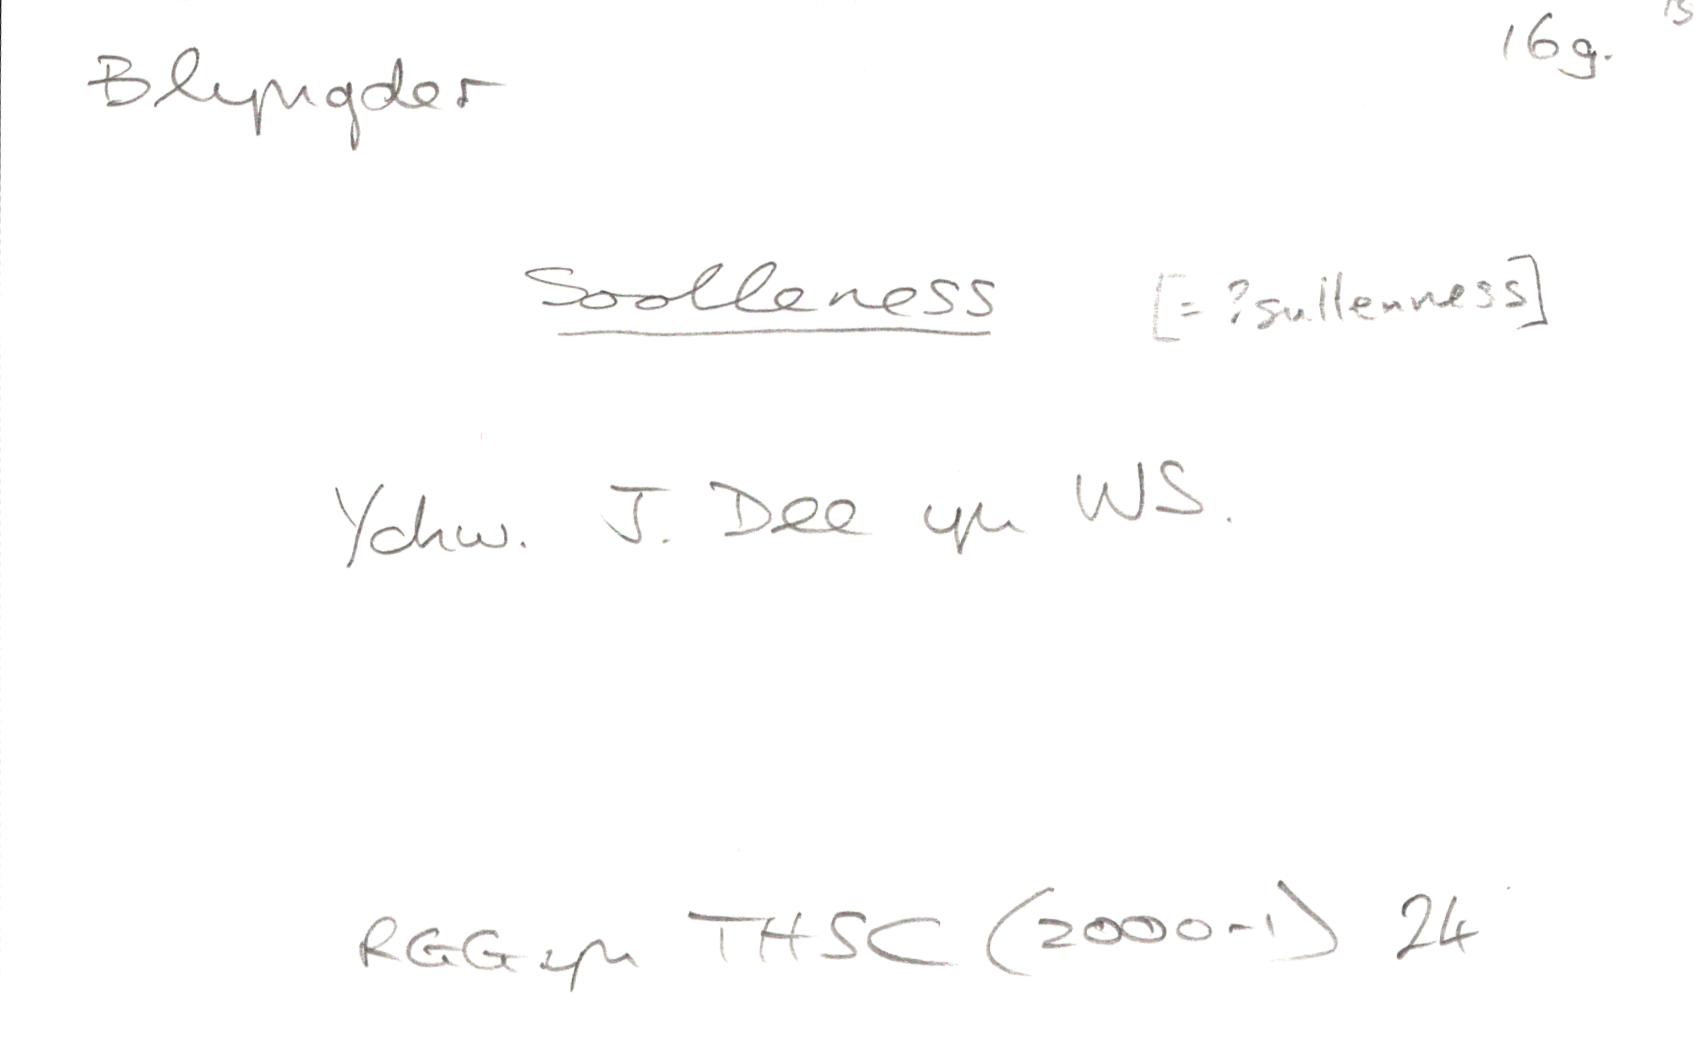 16g.
Blyngder
Soolleness [= ?sullenness]
Ychw. J. Dee yn WS.
RGG yn THSC (2000-1) 24